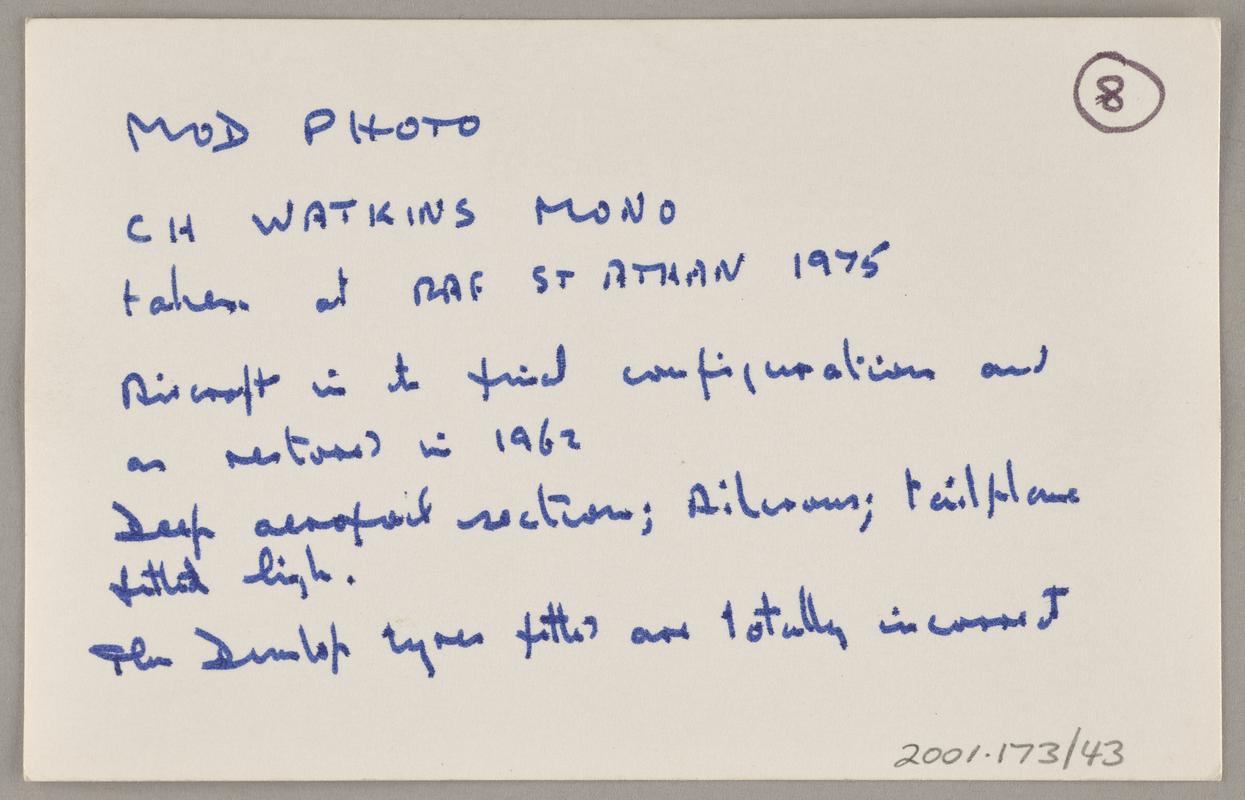 8
MOD PHOTO
CH WATKINS MONO
taken at RAF ST ATHAN 1975
Aircraft in its final configuration and
as restored in 1962
Deep aerofoil section; Ailerons; tailplane
fitted high.
The Dunlop tyres fitted are totally incorrect
2001.173/43